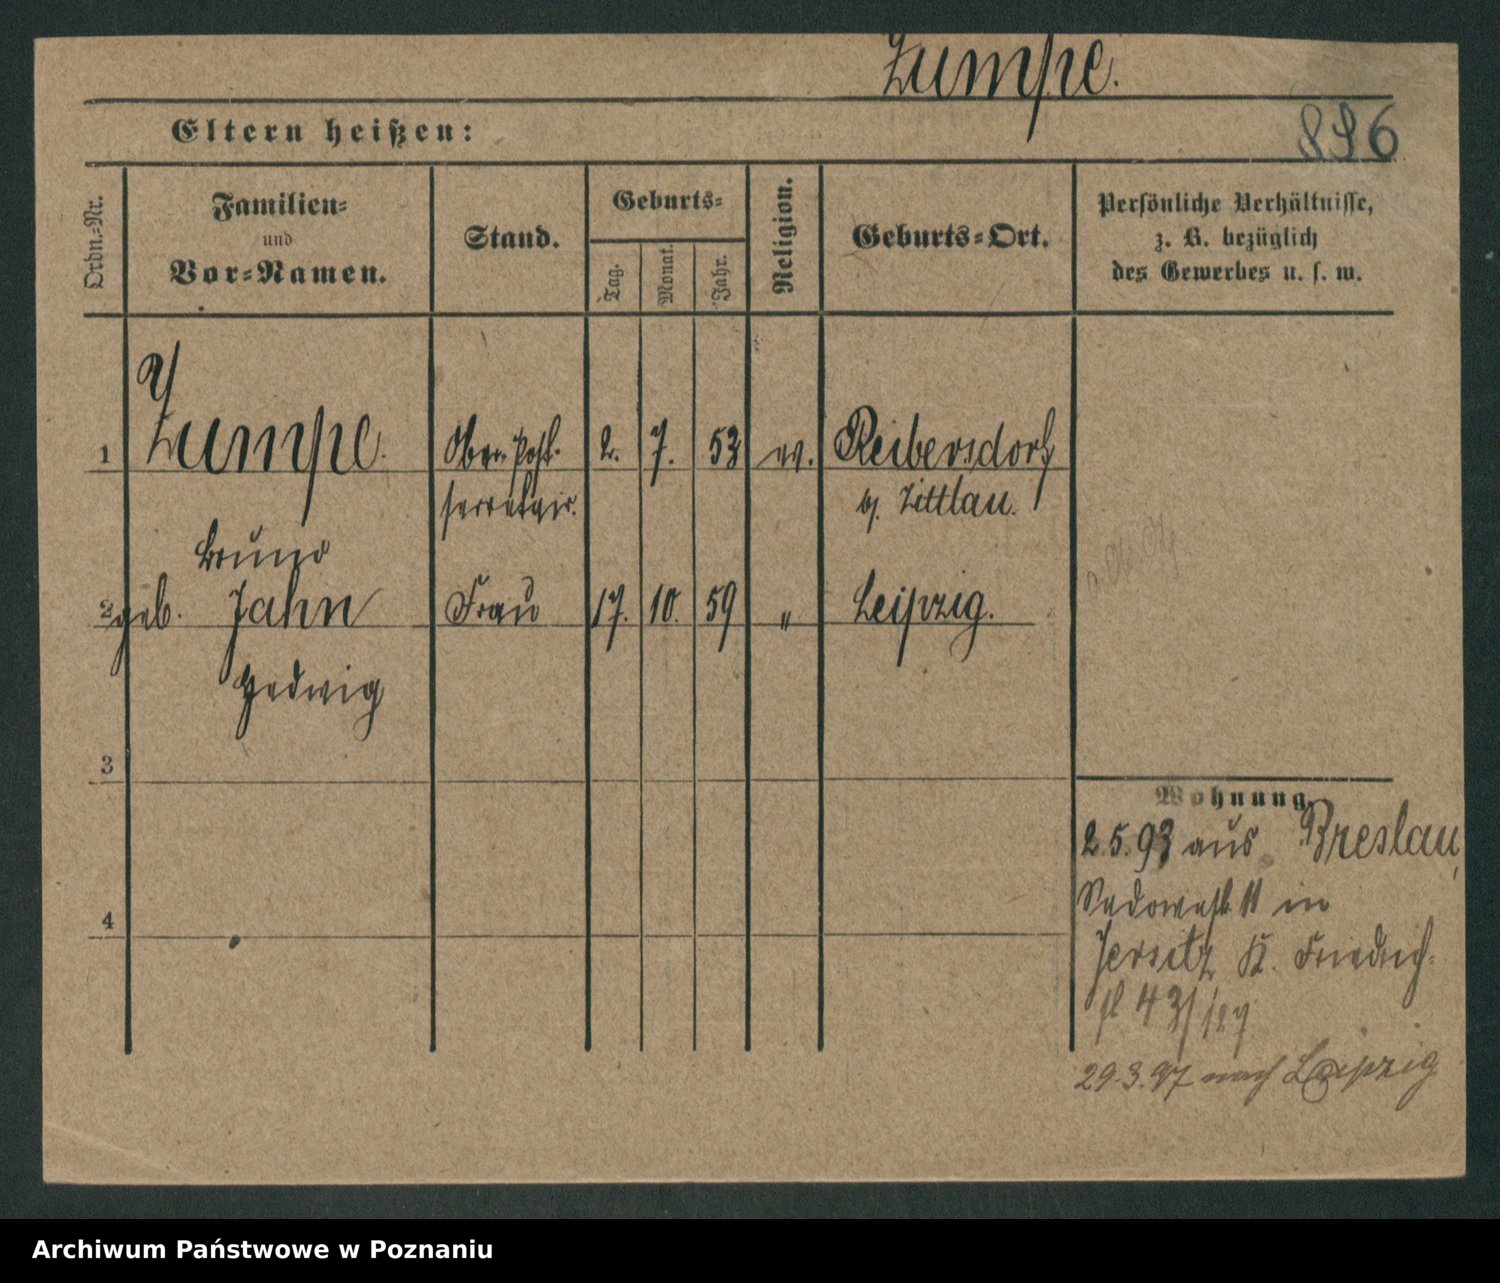 Zumpe.
Eltern heißen:
896
Ordn.-Nr.
Familien-
und
Vor-Namen.
Stand.
Geburts-
Tag.
Monat.
Jahr.
Religion.
Geburts-Ort.
Persönliche Verhältnisse,
z. B. bezüglich
des Gewerbes u. s. w.
1 Zumpe. Ober-Post- 2. 7. 53 ev. Reibersdorf
secretair. b. Zittau.
Bruno
2 geb. Jahn Frau 17. 10. 59 " Leipzig.
Hedwig
3
4
Wohnung.
2.5.93 aus Breslau,
11 in
Jersitz K. Friedrich-
29.3.97 nach Leipzig
Archiwum Państwowe w Poznaniu